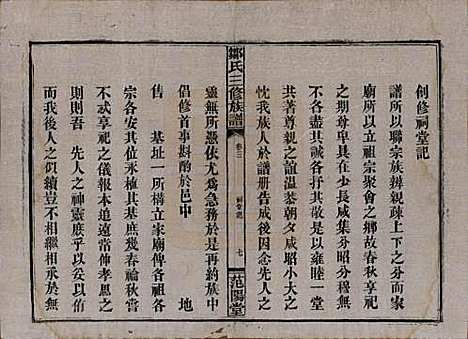 創修祠堂記
譜所以聯宗族辨親疎上下之分而家
廟所以立祖宗聚會之鄉故春秋享祀
之期尊卑具在少長咸集芬昭分穆無
弁各盡其誠各抒其敬是以雍睦一堂
共著尊親之誼溫恭朝夕咸昭小大之
忱我族人於譜册告成後因念先人之
鄒氏三修族譜
卷三
祠堂記
七
范陽堂
靈無所憑依尤爲急務於是再約族中
倡修首事斟酌於邑中 地
售 基址一所構立家廟俾各祖
宗各安其位其基庶幾春論秋嘗
不忒享祀之儀報本追遠常伸孝思之
則則吾 先人之神靈庶乎以慰
而我後人之似續豈不相繼相承於無